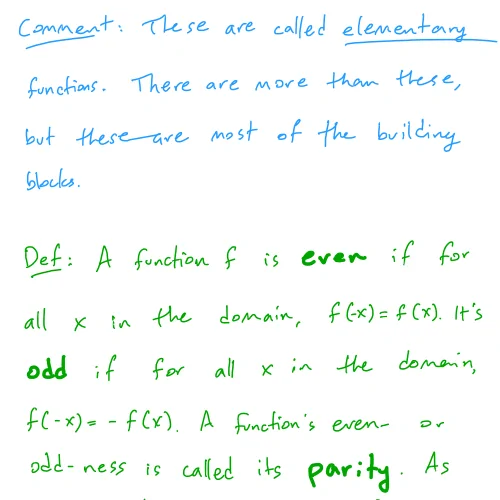 Comment: These are called elementary
functions. There are more than these,
but these are most of the building
blocks.
Def: A function f is even if for
all x in the domain, f(-x)=f(x). It's
odd if for all x in the domain,
f(-x)=-f(x). A function's even- or
odd-ness is called its parity. As